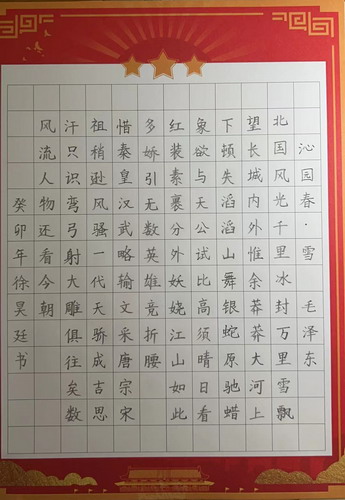 沁园春·雪 毛泽东
北国风光千里冰封万里雪飘
望长城内外惟余莽莽大河上
下顿失滔滔山舞银蛇原驰蜡
象欲与天公试比高须晴日看
红装素裹分外妖娆江山如此
多娇引无数英雄竞折腰
惜秦皇汉武略输文采唐宗宋
祖稍逊风骚一代天骄成吉思
汗只识弯弓射大雕俱往矣数
风流人物还看今朝
癸卯年徐昊廷书